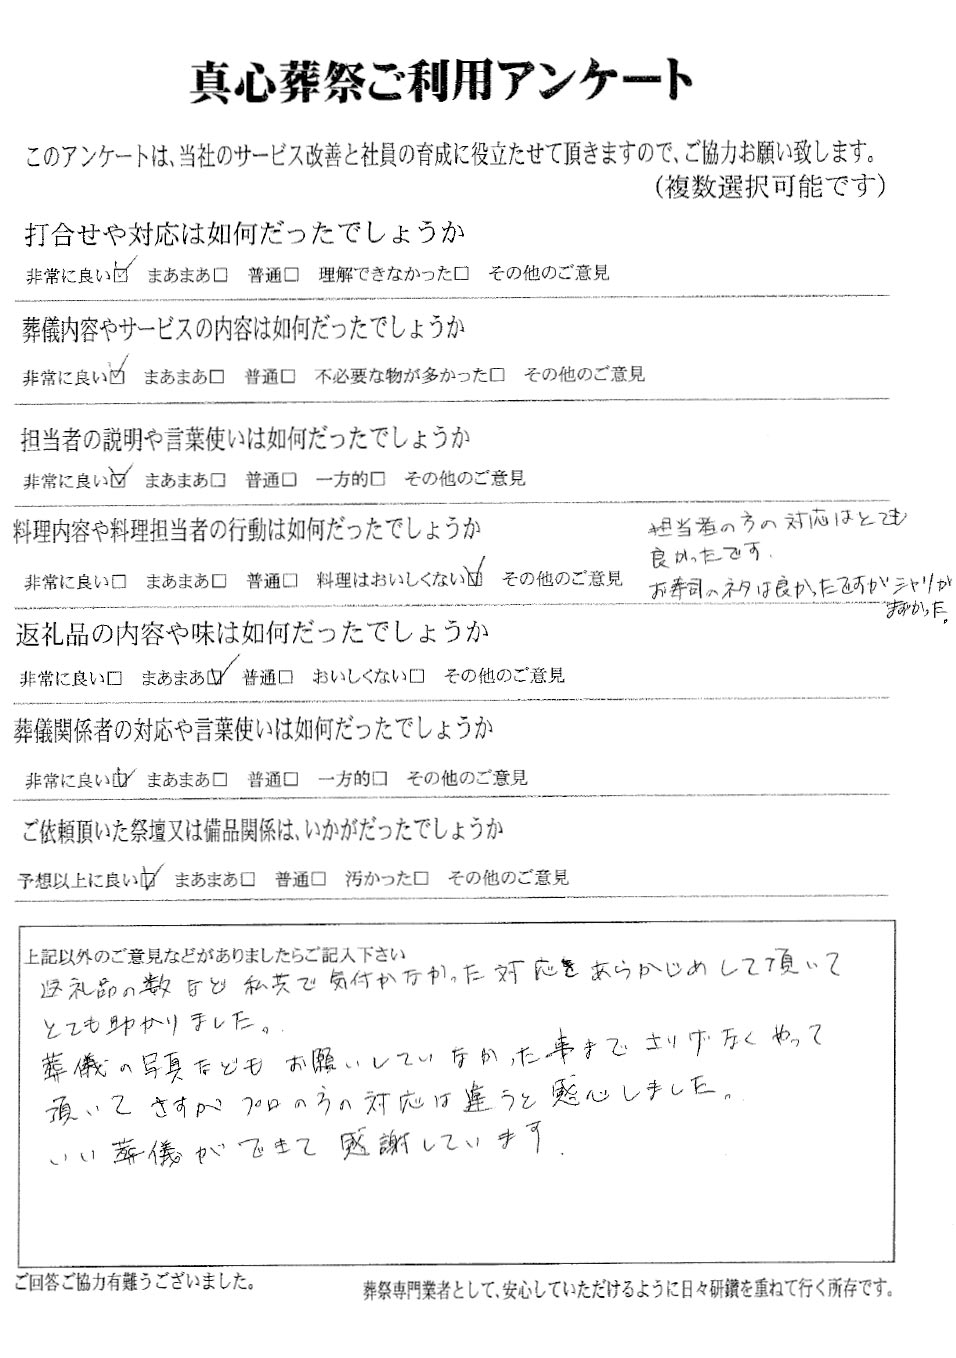 真心葬祭ご利用アンケート
このアンケートは、当社のサービス改善と社員の育成に役立たせて頂きますので、ご協力お願い致します。
（複数選択可能です）
打合せや対応は如何だったでしょうか
非常に良い☑ まあまあ□ 普通□ 理解できなかった□ その他のご意見
葬儀内容やサービスの内容は如何だったでしょうか
非常に良い☑ まあまあ□ 普通□ 不必要な物が多かった□ その他のご意見
担当者の説明や言葉使いは如何だったでしょうか
非常に良い☑ まあまあ□ 普通□ 一方的□ その他のご意見
料理内容や料理担当者の行動は如何だったでしょうか
非常に良い□ まあまあ□ 普通□ 料理はおいしくない☑ その他のご意見
担当者の方の対応はとても
良かったです.
お寿司のネタは良かったですがシャリが
まずかった。
返礼品の内容や味は如何だったでしょうか
非常に良い□ まあまあ☑ 普通□ おいしくない□ その他のご意見
葬儀関係者の対応や言葉使いは如何だったでしょうか
非常に良い☑ まあまあ□ 普通□ 一方的□ その他のご意見
ご依頼頂いた祭壇又は備品関係は、いかがだったでしょうか
予想以上に良い☑ まあまあ□ 普通□ 汚かった□ その他のご意見
上記以外のご意見などがありましたらご記入下さい
返礼品の数など私共で気付かなかった対応をあらかじめして頂いて
とても助かりました。
葬儀の写真などもお願いしていなかった事までさりげなくやって
頂いてさすがプロの方の対応は違うと感心しました。
いい葬儀ができて感謝しています.
ご回答ご協力有難うございました。
葬祭専門業者として、安心していただけるように日々研鑽を重ねて行く所存です。